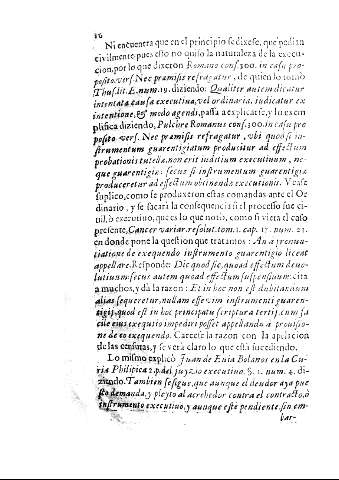 16
Ni encuentra que en el principio se dixese, que pedian
civilmente pues esto no quiso la naturaleza de la execu-
cion, por lo que dixeron Romano cons. 300. in casu pro-
posito, vers. Nec præmisis refragatur, de quien lo tomò
Thus. lit. E. num. 19. diziendo: Qualiter autem dicatur
intentata causa executiva, vel ordinaria, iudicatur ex
intentione, & modo agendi, passa a explicarse, y lo exem
plifica diziendo, Pulchre Romanus cons. 300. in casu pro
posito vers. Nec præmisis refragatur, ubi quod si in-
strumentum guarentigiatum producitur ad effectum
probationis tutelæ, non erit iuditium executivum, ne-
que guarentigiæ: secus si instrumentum guarentigiæ
produceretur ad effectum obtinendæ executionis. Vease
suplico, como se produxeron estas comandas ante el Or
dinario, y se sacarà la consequencia si el processo fue ci-
vil, ò executivo, que es la que notò, como si viera el caso
presente, Cancer variar. resolut. tom. 2. cap. 17. num. 23.
en donde pone la question que tratamos: An a pronun-
tiatione de exequendo instrumento guarentigio liceat
appellare. Responde: Dic quod sic, quoad effectum devo-
lutivum: secus autem quoad effectum suspensivum: cita
a muchos, y dà la razon: Et in hoc non est dubitandum
alias sequeretur, nullam esse vim instrumenti guaren-
tigij, quod est in hoc principatu scriptura tertij, cum fa
cile eius exequutio impediri posset appellando a provisio-
ne de eo exequendo. Careste la razon con la apelacion
de las censuras, y se verà claro lo que està sucediendo.
Lo mismo explicò Juan de Evia Bolaños en la Cu-
ria Philipica 2. p. del juyzio executivo. §. 1. num. 4. di-
ziendo. Tambien se sigue, que aunque el deudor aya pue
sto demanda, y pleyto al acrehedor contra el contracto, ò
instrumento executivo, y aunque estè pendiente, sin em-
bar-